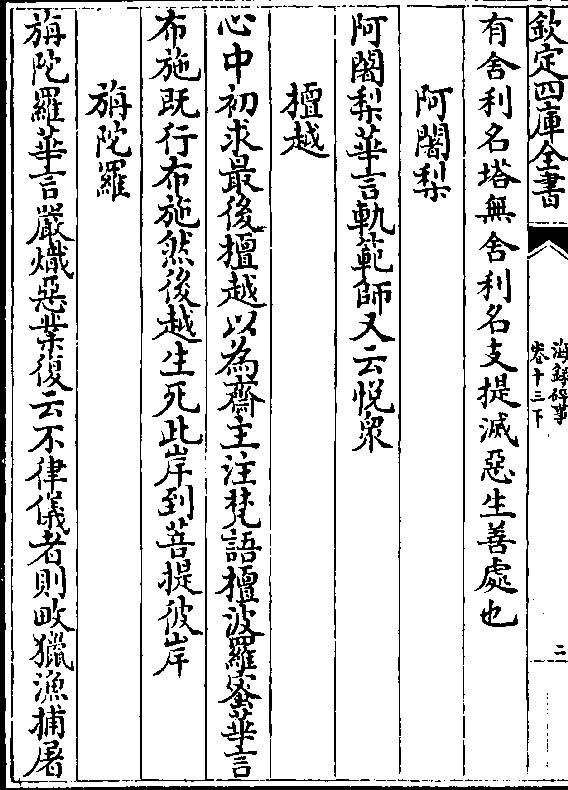 欽定四庫全書
海錄碎事
卷十三下
二
有舍利名塔無舍利名支提滅惡生善處也
阿闍梨
阿闍梨華言軌範師又云悅衆
檀越
心中初求最後檀越以為齋主注梵語檀波羅蜜華言
布施既行布施然後越生死此岸到菩提彼岸
旃陀羅
旃陀羅華言嚴熾惡業復云不律儀者則畋獵漁捕屠